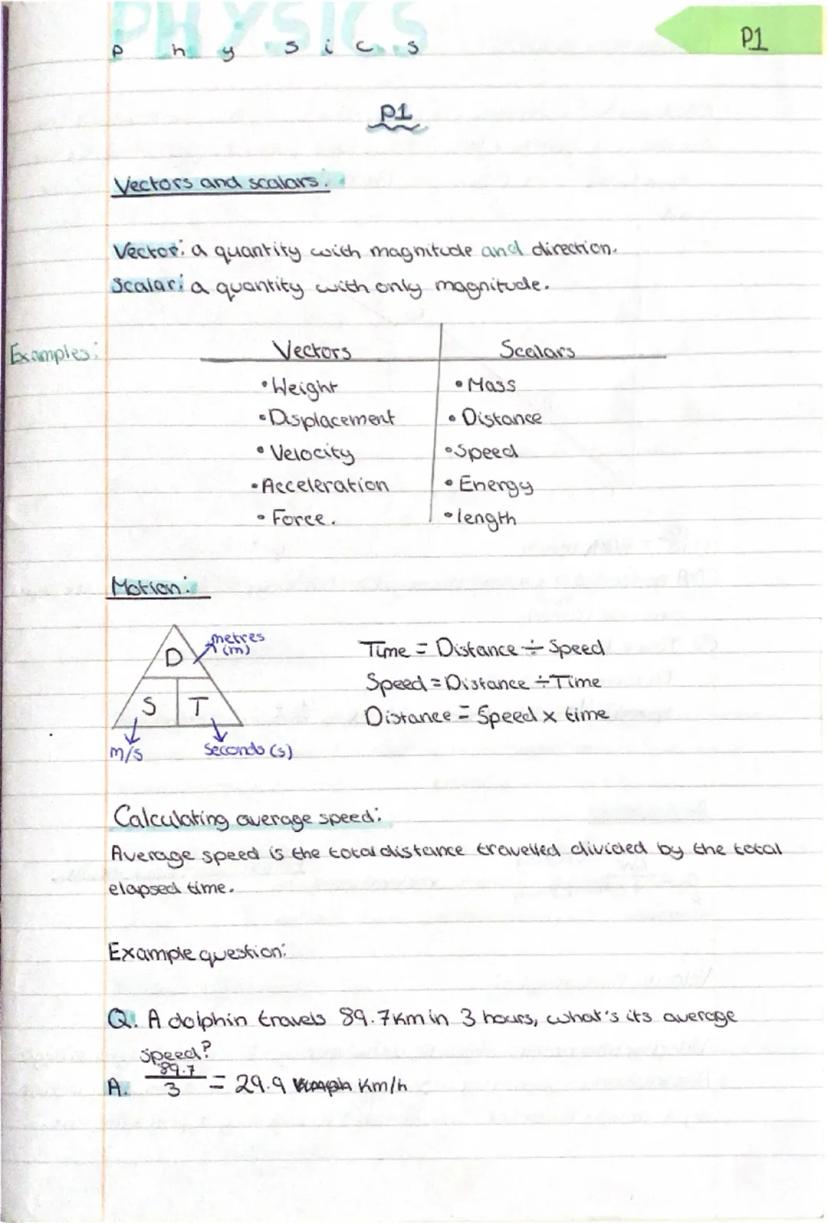 PHYSICS
P h y s i c s
P1
P1
Vectors and scalars:
Vector: a quantity with magnitude and direction.
Scalar: a quantity with only magnitude.
Examples:
Vectors Scalars
• Weight • Mass
• Displacement • Distance
• Velocity • Speed
• Acceleration • Energy
• Force. • length
Motion:
D metres (m)
S T
m/s Seconds (s)
Time = Distance ÷ Speed
Speed = Distance ÷ Time
Distance = Speed x time
Calculating average speed:
Average speed is the total distance travelled divided by the total
elapsed time.
Example question:
Q. A dolphin travels 89.7km in 3 hours, what's its average
speed?
A. 89.7/3 = 29.9 Km/h